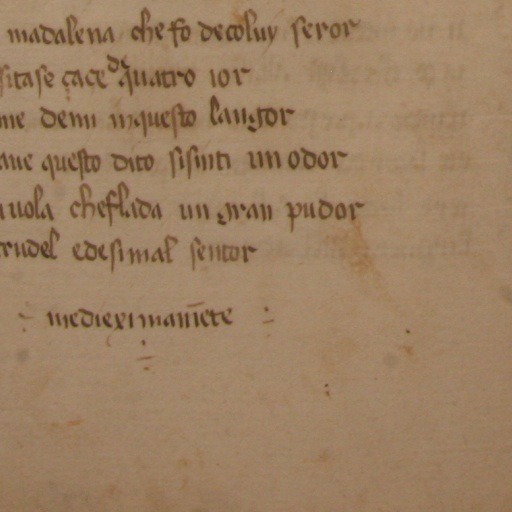 madalena che fo de coluy seror
sitase çace da quatro ior
me demi in questo langor
aue questo dito sisinti un odor
uola che flada un gran pudor
crudel e desi mal sentor